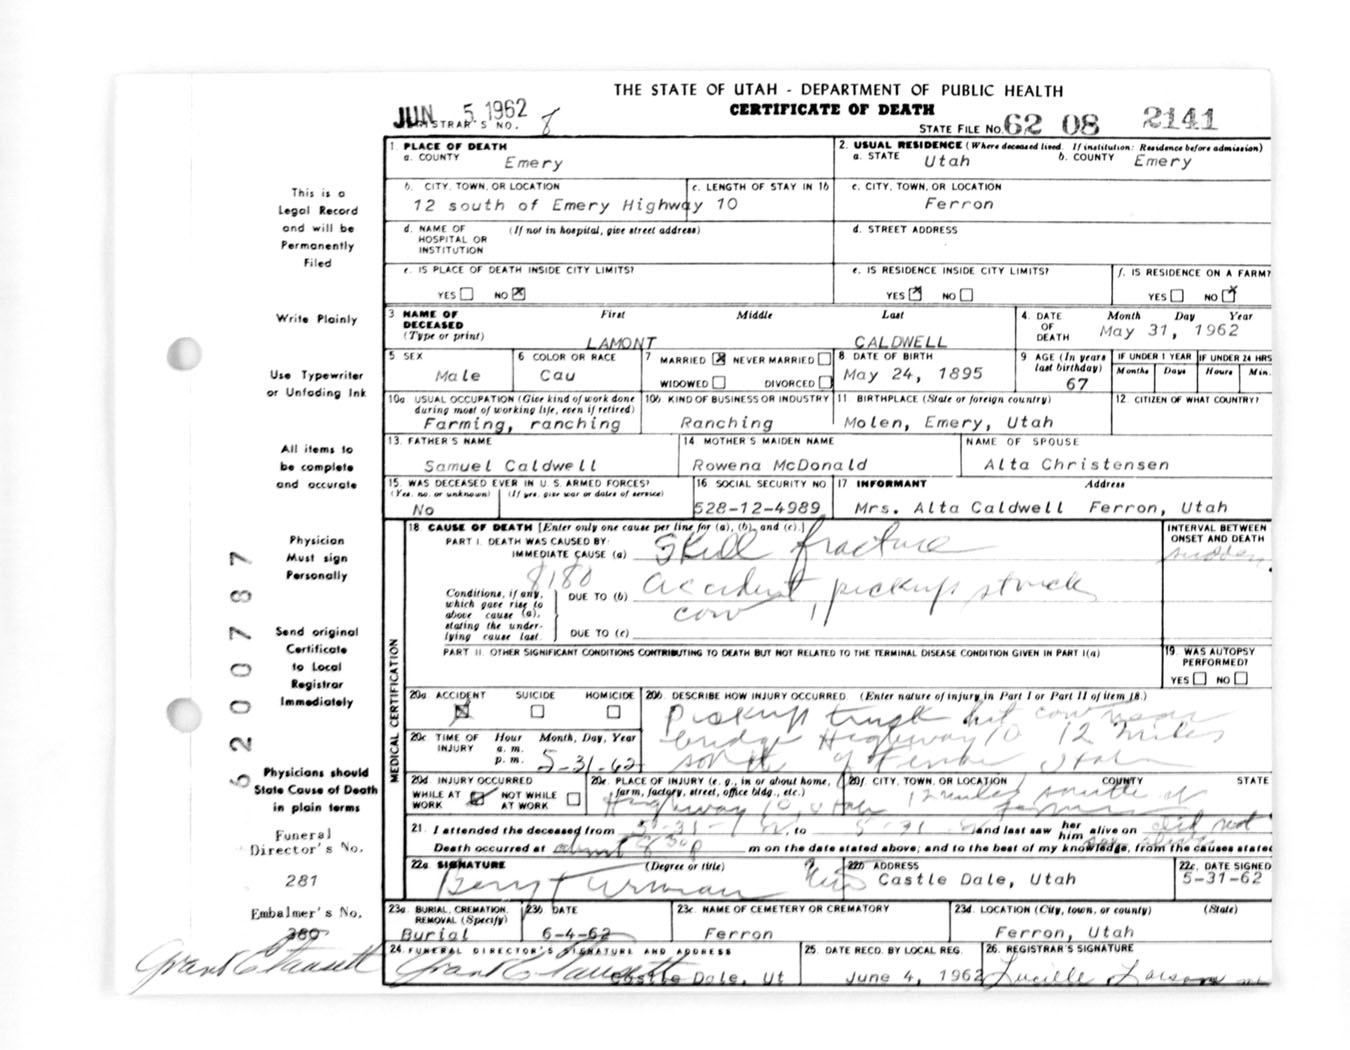 THE STATE OF UTAH - DEPARTMENT OF PUBLIC HEALTH
CERTIFICATE OF DEATH
JUN 5 1962
REGISTRAR'S NO. 8
STATE FILE NO. 62 08 2141
This is a
Legal Record
and will be
Permanently
Filed
Write Plainly
Use Typewriter
or Unfading Ink
All items to
be complete
and accurate
Physician
Must sign
Personally
Send original
Certificate
to Local
Registrar
Immediately
Physicians should
State Cause of Death
in plain terms
Funeral
Director's No.
281
Embalmer's No.
380
6200787
1. PLACE OF DEATH
a. COUNTY Emery
2. USUAL RESIDENCE (Where deceased lived. If institution: Residence before admission)
a. STATE Utah b. COUNTY Emery
b. CITY, TOWN, OR LOCATION c. LENGTH OF STAY IN 1b
12 south of Emery Highway 10
c. CITY, TOWN, OR LOCATION
Ferron
d. NAME OF HOSPITAL OR INSTITUTION (If not in hospital, give street address)
d. STREET ADDRESS
e. IS PLACE OF DEATH INSIDE CITY LIMITS?
YES NO X
e. IS RESIDENCE INSIDE CITY LIMITS?
YES X NO
f. IS RESIDENCE ON A FARM?
YES NO X
3 NAME OF DECEASED (Type or print) First Middle Last
LAMONT CALDWELL
4. DATE OF DEATH Month Day Year
May 31, 1962
5. SEX
Male
6 COLOR OR RACE
Cau
7 MARRIED X NEVER MARRIED
WIDOWED DIVORCED
8 DATE OF BIRTH
May 24, 1895
9 AGE (In years last birthday)
67
IF UNDER 1 YEAR IF UNDER 24 HRS
Months Days Hours Min.
10a USUAL OCCUPATION (Give kind of work done during most of working life, even if retired)
Farming, ranching
10b KIND OF BUSINESS OR INDUSTRY
Ranching
11 BIRTHPLACE (State or foreign country)
Molen, Emery, Utah
12 CITIZEN OF WHAT COUNTRY?
13. FATHER'S NAME
Samuel Caldwell
14 MOTHER'S MAIDEN NAME
Rowena McDonald
NAME OF SPOUSE
Alta Christensen
15. WAS DECEASED EVER IN U.S. ARMED FORCES?
(Yes, no, or unknown) (If yes, give war or dates of service)
No
16 SOCIAL SECURITY NO
528-12-4989
17 INFORMANT Address
Mrs. Alta Caldwell Ferron, Utah
MEDICAL CERTIFICATION
18 CAUSE OF DEATH [Enter only one cause per line for (a), (b), and (c).]
INTERVAL BETWEEN ONSET AND DEATH
PART I. DEATH WAS CAUSED BY:
IMMEDIATE CAUSE (a) Skull fracture
sudden
8180
Conditions, if any, which gave rise to above cause (a), stating the underlying cause last.
DUE TO (b) accident, pickup struck
cow
DUE TO (c)
PART II. OTHER SIGNIFICANT CONDITIONS CONTRIBUTING TO DEATH BUT NOT RELATED TO THE TERMINAL DISEASE CONDITION GIVEN IN PART I(a)
19. WAS AUTOPSY PERFORMED?
YES NO
20a. ACCIDENT SUICIDE HOMICIDE
X
20b. DESCRIBE HOW INJURY OCCURRED. (Enter nature of injury in Part I or Part II of item 18.)
Pickup truck hit cow near
bridge Highway 10 12 miles
south of Ferron Utah
20c TIME OF INJURY Hour Month, Day, Year
a. m.
p. m. 5-31-62
20d. INJURY OCCURRED
WHILE AT WORK X NOT WHILE AT WORK
20e. PLACE OF INJURY (e. g., in or about home, farm, factory, street, office bldg., etc.)
Highway 10, Utah
20f. CITY, TOWN, OR LOCATION COUNTY STATE
12 miles south of
Ferron
21. I attended the deceased from 5-31-62, to 5-31-62 and last saw her him alive on did not
see alive
Death occurred at about 8 30 p m on the date stated above; and to the best of my knowledge, from the causes stated
22a. SIGNATURE (Degree or title)
22b ADDRESS
Castle Dale, Utah
22c. DATE SIGNED
5-31-62
23a. BURIAL, CREMATION, REMOVAL (Specify)
Burial
23b DATE
6-4-62
23c. NAME OF CEMETERY OR CREMATORY
Ferron
23d. LOCATION (City, town, or county) (State)
Ferron, Utah
24. FUNERAL DIRECTOR'S SIGNATURE AND ADDRESS
Castle Dale, Ut
25. DATE RECD. BY LOCAL REG.
June 4, 1962
26. REGISTRAR'S SIGNATURE
Lucille Larson